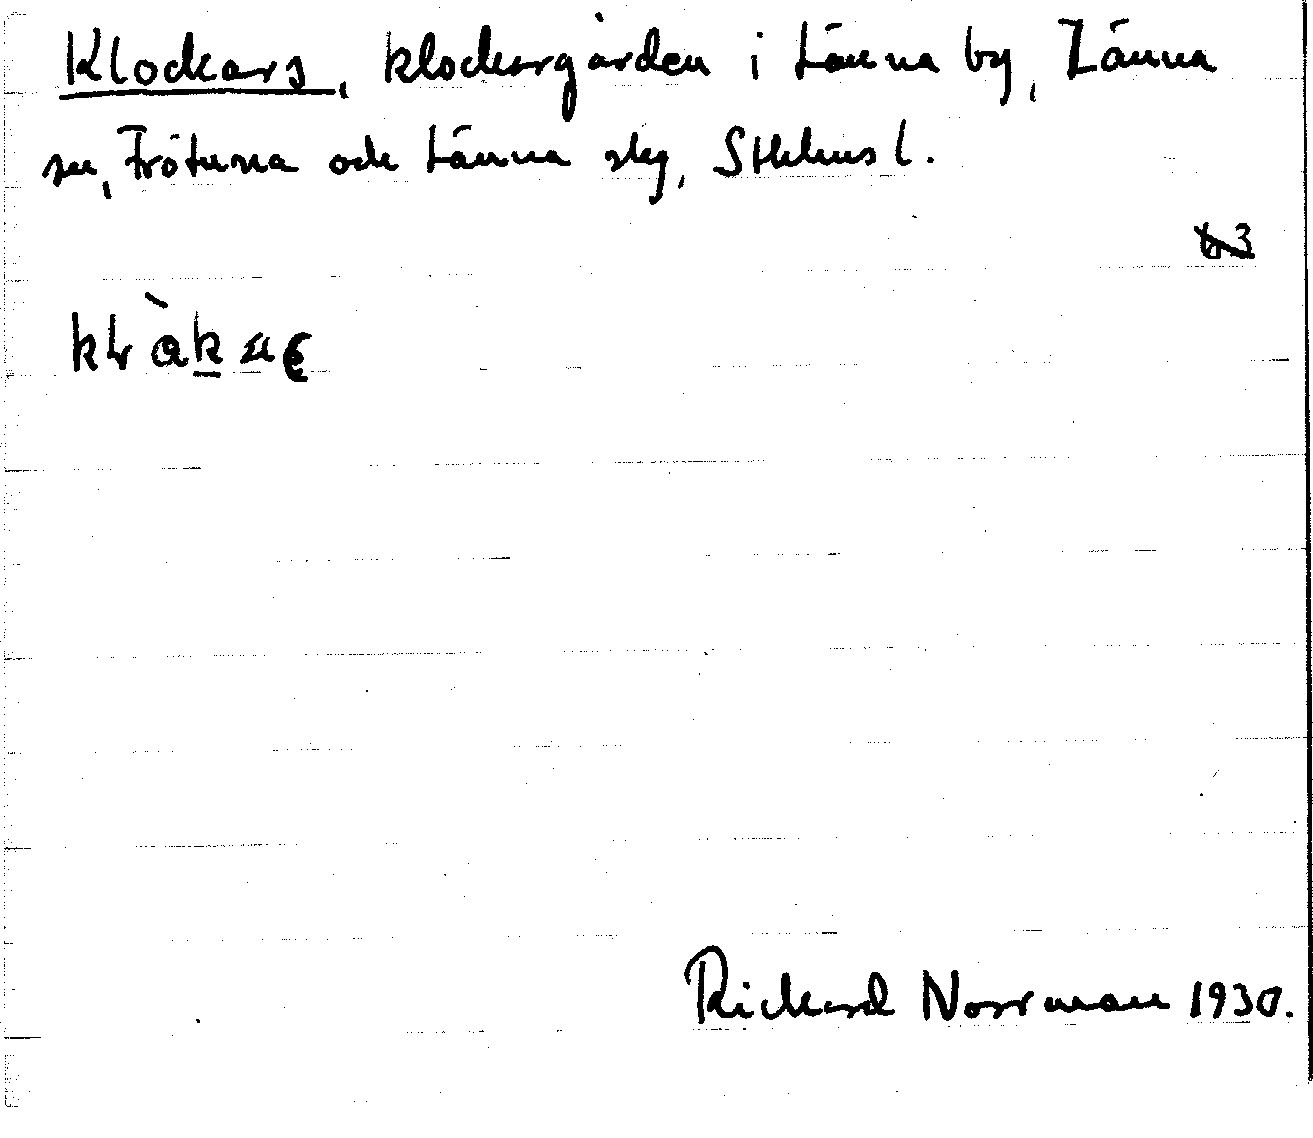 Klockars, klockargården i Länna by, Länna
sn, Frötuna och Länna skg, Sthlms l.
Rickard Norrman 1930.